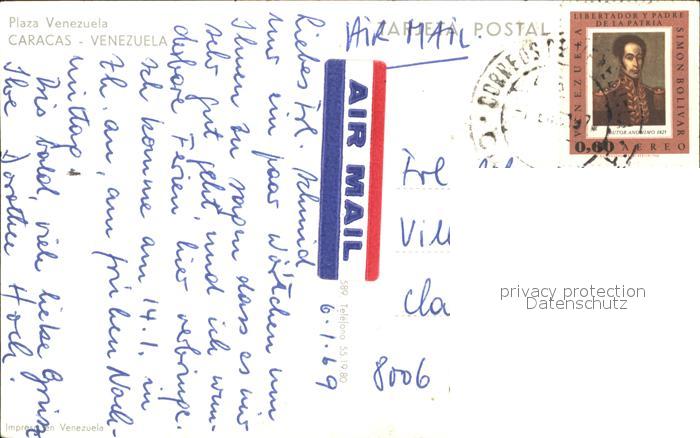 Plaza Venezuela
CARACAS - VENEZUELA
TARJETA POSTAL
AIR MAIL.
AIR MAIL
LIBERTADOR Y PADRE
DE LA PATRIA
VENEZUELA
SIMON BOLIVAR
AUTOR ANONIMO 1821
0,60 AEREO
CORREOS
6.1.69
Liebes Frl. Schmid
Nur ein paar Wörtchen um
Ihnen zu sagen dass es mir
sehr gut geht, und ich wun-
derbare Ferien hier verbringe.
Ich komme am 14.1. in
Zh. an, am frühen Nach-
mittag.
Bis bald, viele liebe Grüsse
Ihre Dorothee Hoch.
Frl
Vill
Cla
8006
589 Teléfono 55.19.80
Impreso en Venezuela
privacy protection
Datenschutz